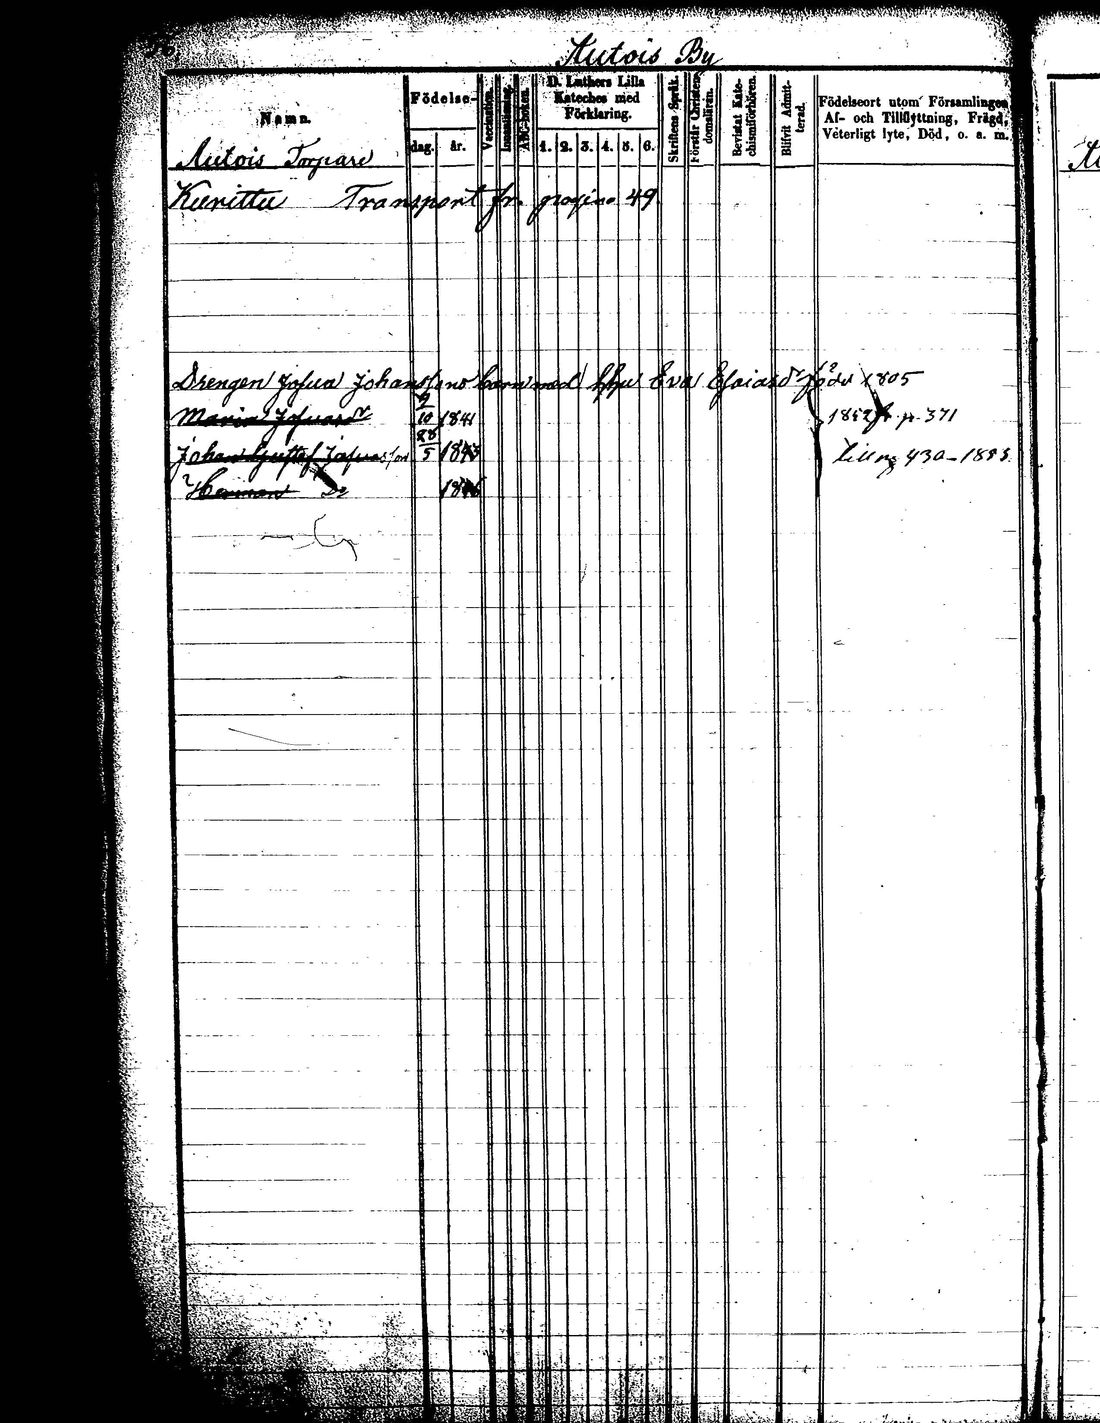 Autois By
Namn.
Födelse-
dag. år.
Vaccination.
Innanläsning.
ABC-boken.
D. Luthers Lilla
Kateches med
Förklaring.
1. 2. 3. 4. 5. 6.
Skriftens Språk.
Förstår Christendomsläran.
Bevistat Kate-
chismiförhören.
Blifvit Admit-
terad.
Födelseort utom Församlingen,
Af- och Tillflyttning, Frägd,
Veterligt lyte, Död, o. a. m.
Autois Torpare
Kuvittu Transport fr. pagina 49.
Drengen Josua Johanssons barn med h:hu Eva Esaiasdr född 1805
Maria Josuasdr 9/10 1841 1852 fr. p. 371
Johan Gustaf Josuasson 28/5 1843 430 - 1853.
Herman Do 1846